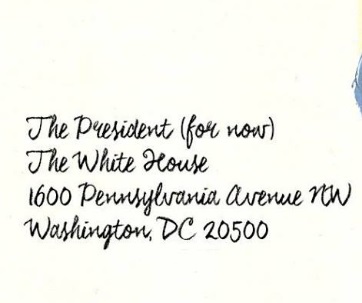 The President (for now)
The White House
1600 Pennsylvania Avenue NW
Washington, DC 20500